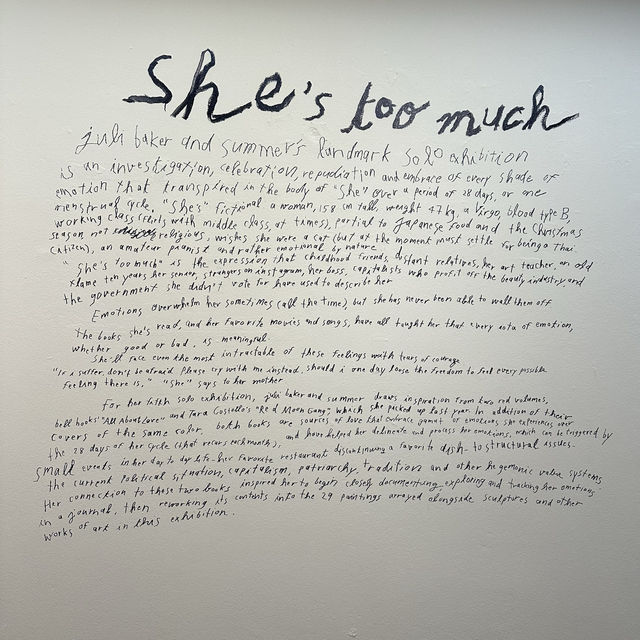 she's too much
juli baker and summer's landmark solo exhibition
is an investigation, celebration, repudiation and embrace of every shade of
emotion that transpired in the body of "She" over a period of 28 days, or one
menstrual cycle. "She's" fictional a woman, 158 cm tall, weight 47 kg, a Virgo, blood type B,
working class (flirts with middle class, at times), partial to Japanese food and the Christmas
season not religious, wishes she were a cat (but at the moment must settle for being a Thai
citizen), an amateur pianist and rather emotional by nature
"She's too much" is the expression that childhood friends, distant relatives, her art teacher, an old
flame ten years her senior, strangers on instagram, her boss, capitalists who profit off the beauty industry, and
the government she didn't vote for have used to describe her
Emotions overwhelm her sometimes (all the time), but she has never been able to wall them off
The books she's read, and her favorite movies and songs, have all taught her that every iota of emotion,
whether good or bad, is meaningful.
She'll face even the most intractable of these feelings with tears of courage
"If i suffer, don't be afraid. Please cry with me instead, should i one day loose the freedom to feel every possible
feeling there is," "She" says to her mother
For her solo exhibition, juli baker and summer draws inspiration from two red volumes,
bell hooks' "All About Love" and Tara Costello's "Red Moon Gang", which she picked up last year. In addition of their
covers of the same color, both books are sources of love that embrace gamut of emotions she experiences over
the 28 days of her cycle (that recurs each month), and have helped her delineate and process her emotions, which can be triggered by
small events in her day to day life - her favorite restaurant discontinuing a favorite dish - to structural issues,
the current political situation, capitalism, patriarchy, tradition and other hegemonic value systems
Her connection to these two books inspired her to begin closely documenting, exploring and tracking her emotions
in a journal, then reworking its contents into the 29 paintings arrayed alongside sculptures and other
works of art in this exhibition.